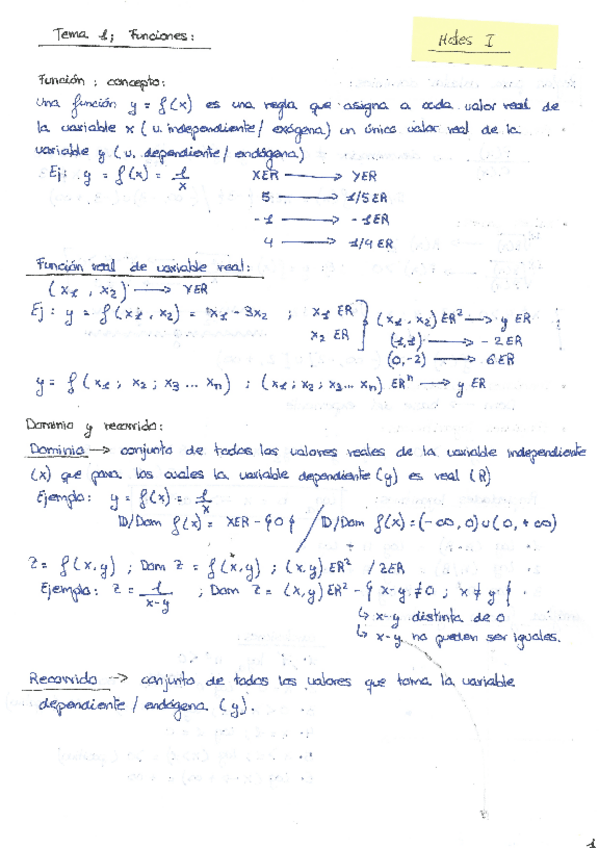 Tema 1; Funciones:
Mates I
Función: concepto:
Una función y = f(x) es una regla que asigna a cada valor real de
la variable x (v. independiente / exógena) un único valor real de la
variable y (v. dependiente / endógena)
Ej: y = f(x) = 1/x    X∈R → Y∈R
5 → 1/5 ∈R
-1 → -1 ∈R
4 → 1/4 ∈R
Función real de variable real:
(x1, x2) → Y∈R
Ej: y = f(x1, x2) = x1 - 3x2 ; x1 ∈R x2 ∈R } (x1, x2) ∈R² → y ∈R
(1,1) → -2∈R
(0,-2) → 6∈R
y = f(x1; x2; x3... xn) ; (x1; x2; x3... xn) ∈Rⁿ → y ∈R
Dominio y recorrido:
Dominio → conjunto de todos los valores reales de la variable independiente
(x) que para los cuales la variable dependiente (y) es real (R)
Ejemplo: y = f(x) = 1/x
D/Dom f(x) = X∈R - {0} / D/Dom f(x) = (-∞, 0) ∪ (0, +∞)
Z = f(x,y) ; Dom Z = f(x,y) ; (x,y) ∈R² / Z∈R
Ejemplo: Z = 1/x-y ; Dom Z = (x,y)∈R² - { x-y ≠ 0 ; x ≠ y }
↳ x-y distinta de 0
↳ x-y no pueden ser iguales.
Recorrido → conjunto de todos los valores que toma la variable
dependiente / endógena (y).
1